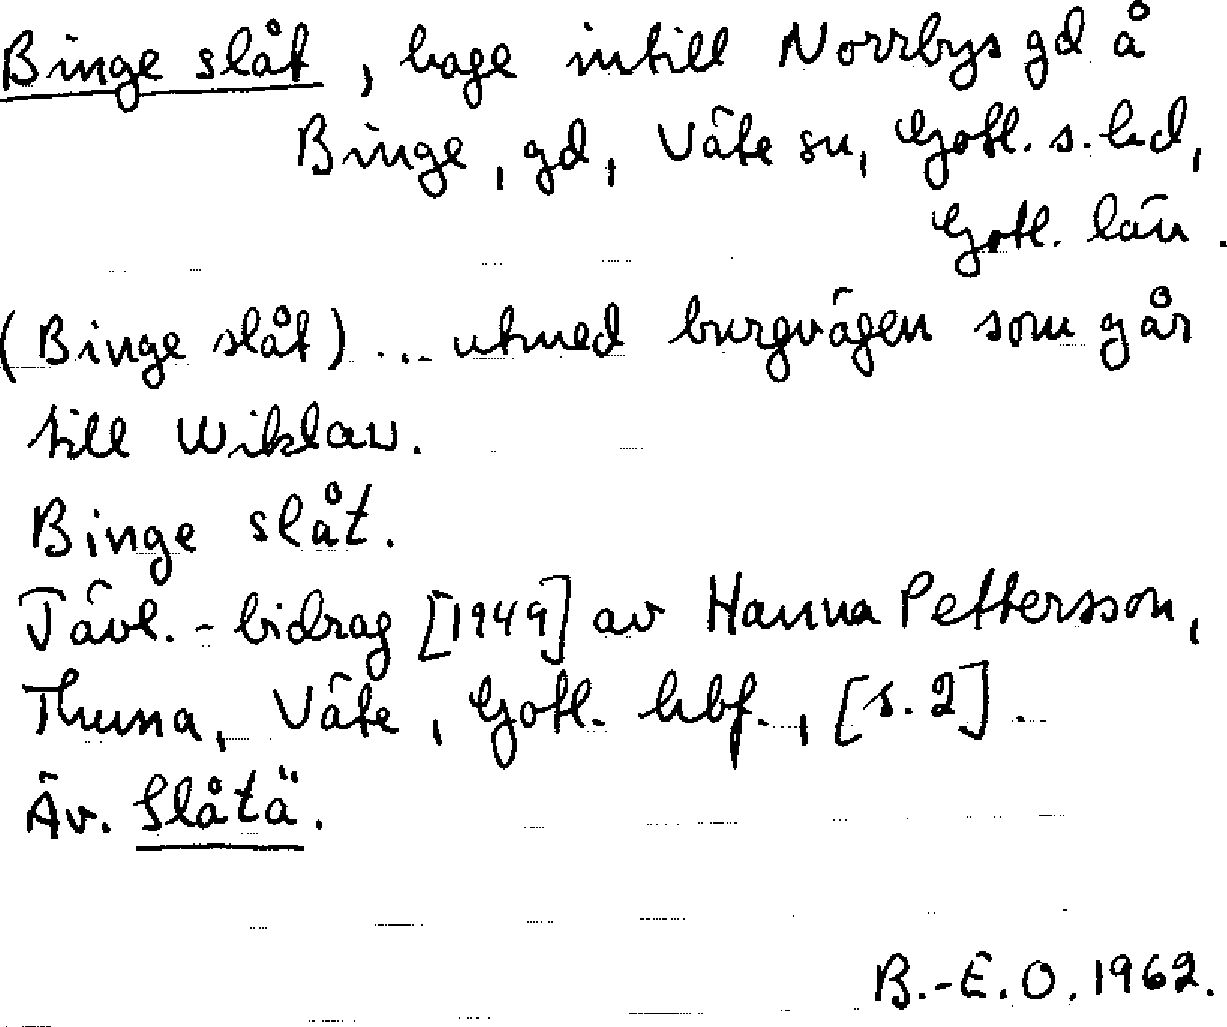 Binge slåt, hage intill Norrbys gd å
Binge, gd, Väte sn, Gotl. s. hd,
Gotl. län.
(Binge slåt) ... utmed burgvägen som går
till Wiklau.
Binge slåt.
Tävl.-bidrag [1949] av Hanna Pettersson,
Thuna, Väte, Gotl. hbf., [s. 2].
Äv. Slåtä.
B.-E. O. 1962.